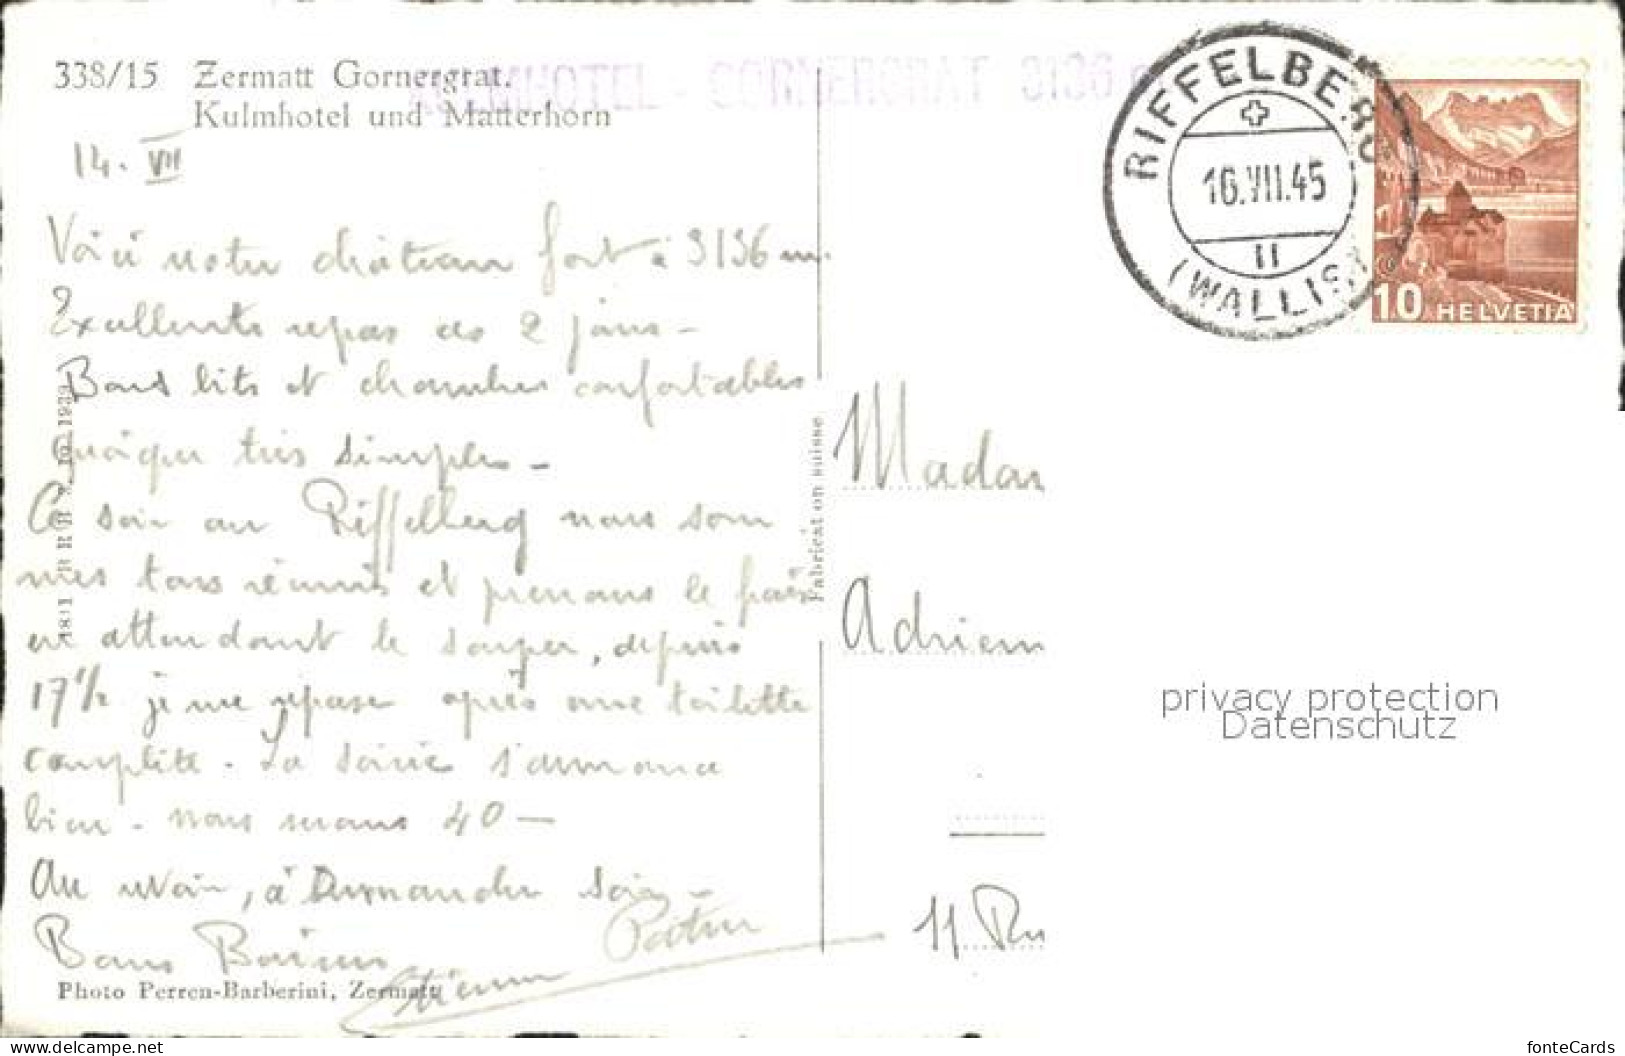 338/15 Zermatt Gornergrat.
Kulmhotel und Matterhorn
KULMHOTEL - GORNERGRAT 3136
RIFFELBERG
16.VII.45
II
(WALLIS)
10 HELVETIA
14. VII
Voici notre château fort à 3136 m.
Excellents repas ces 2 jours -
Bons lits et chambres confortables
quoique très simples -
Ce soir au Riffelberg nous som
mes tous réunis et prenons le frais
en attendant le souper, depuis
17 1/2 je me repose après une toilette
complète. La soirée s'annonce
bien. nous serons 40 -
Au revoir, à Dimanche soir -
Bons Baisers
Etienne
Photo Perren-Barberini, Zermatt
Fabrication suisse
1939
Madam
Adrien
11 Ru
privacy protection
Datenschutz
www.delcampe.net
fonteCards